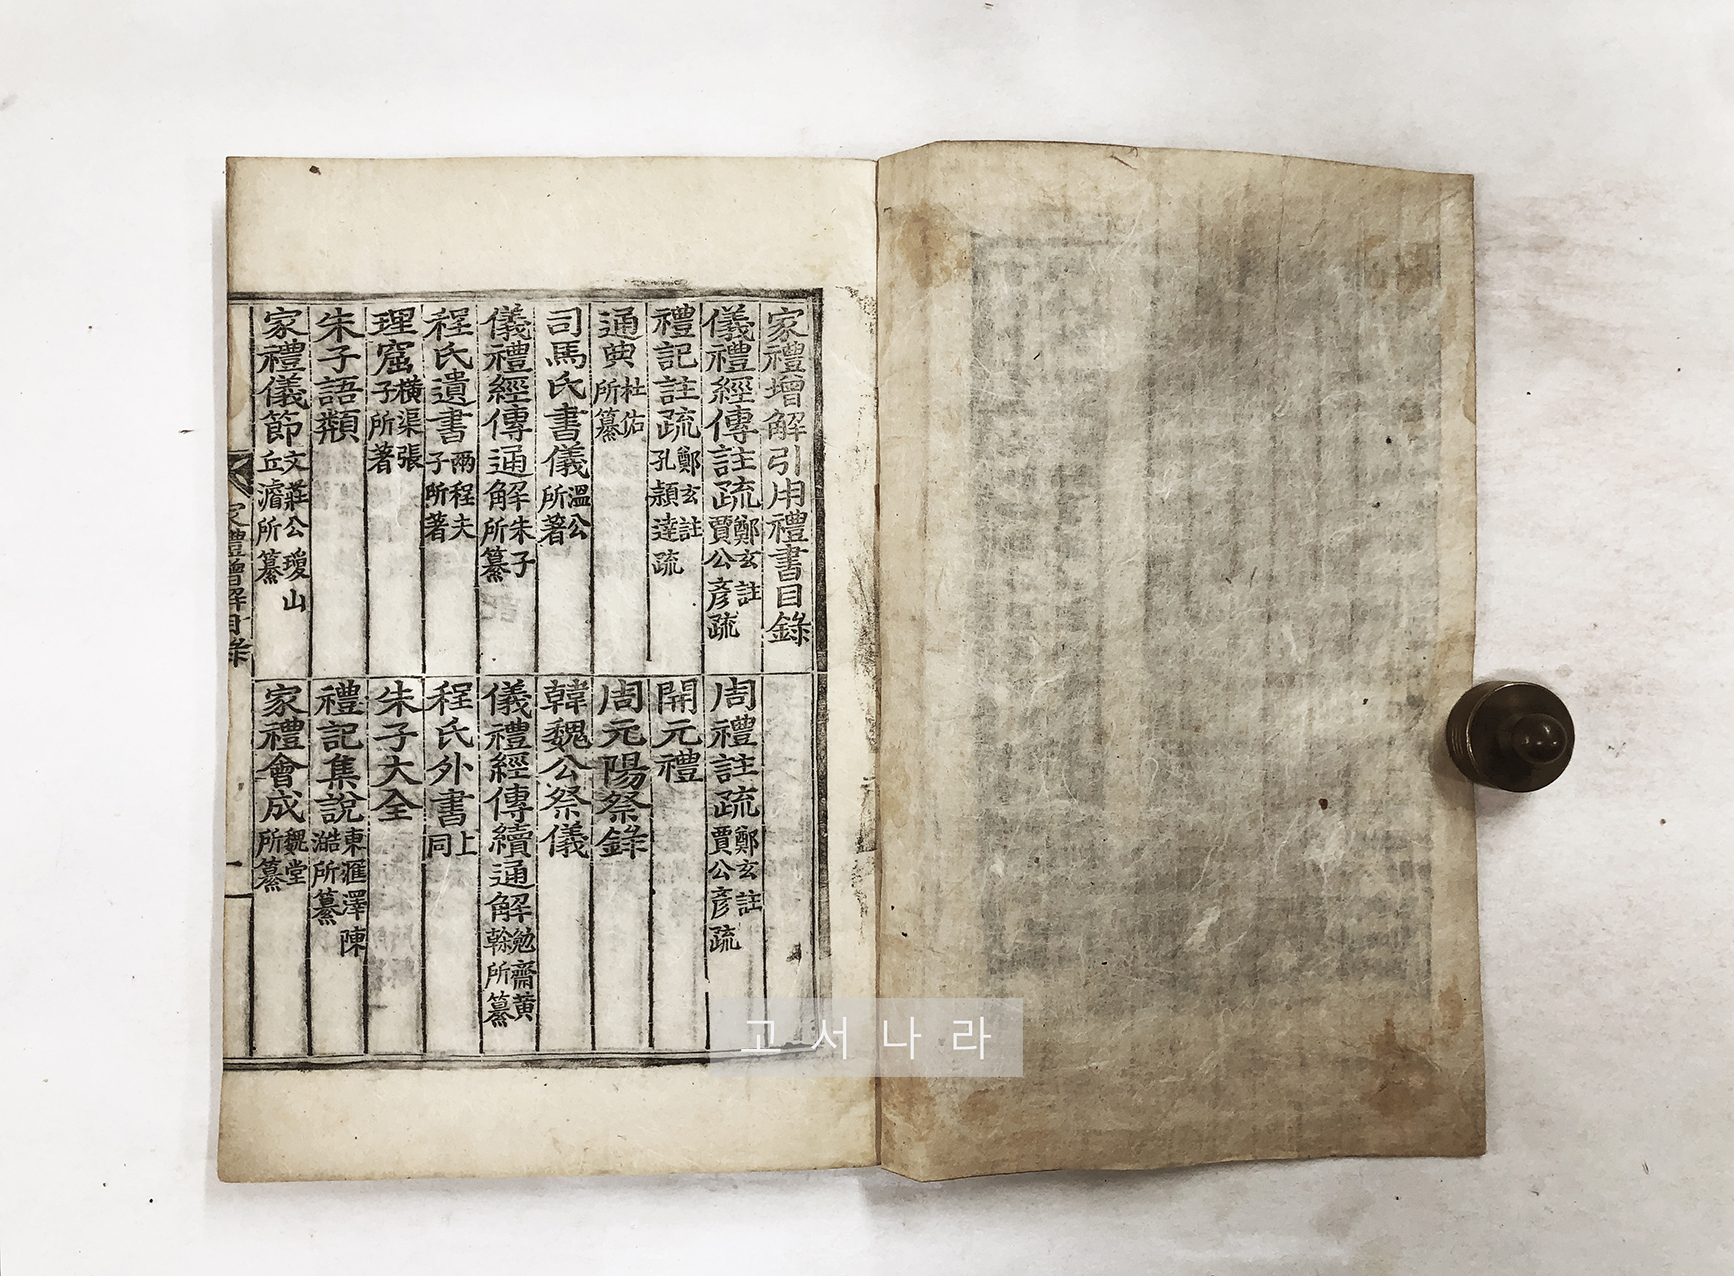 家禮增解引用禮書目錄
儀禮經傳註疏 鄭玄註 賈公彦疏
周禮註疏 鄭玄註 賈公彦疏
禮記註疏 鄭玄註 孔穎達疏
開元禮
通典 杜佑所纂
周元陽祭錄
司馬氏書儀 溫公所著
韓魏公祭儀
儀禮經傳通解 朱子所纂
儀禮經傳續通解 勉齋黃榦所纂
程氏遺書 兩程夫子所著
程氏外書 上同
理窟 橫渠張子所著
朱子大全
朱子語類
禮記集說 東滙澤陳澔所纂
家禮儀節 文莊公瓊山丘濬所纂
家禮會成 魏堂所纂
家禮增解目錄
一
고서나라